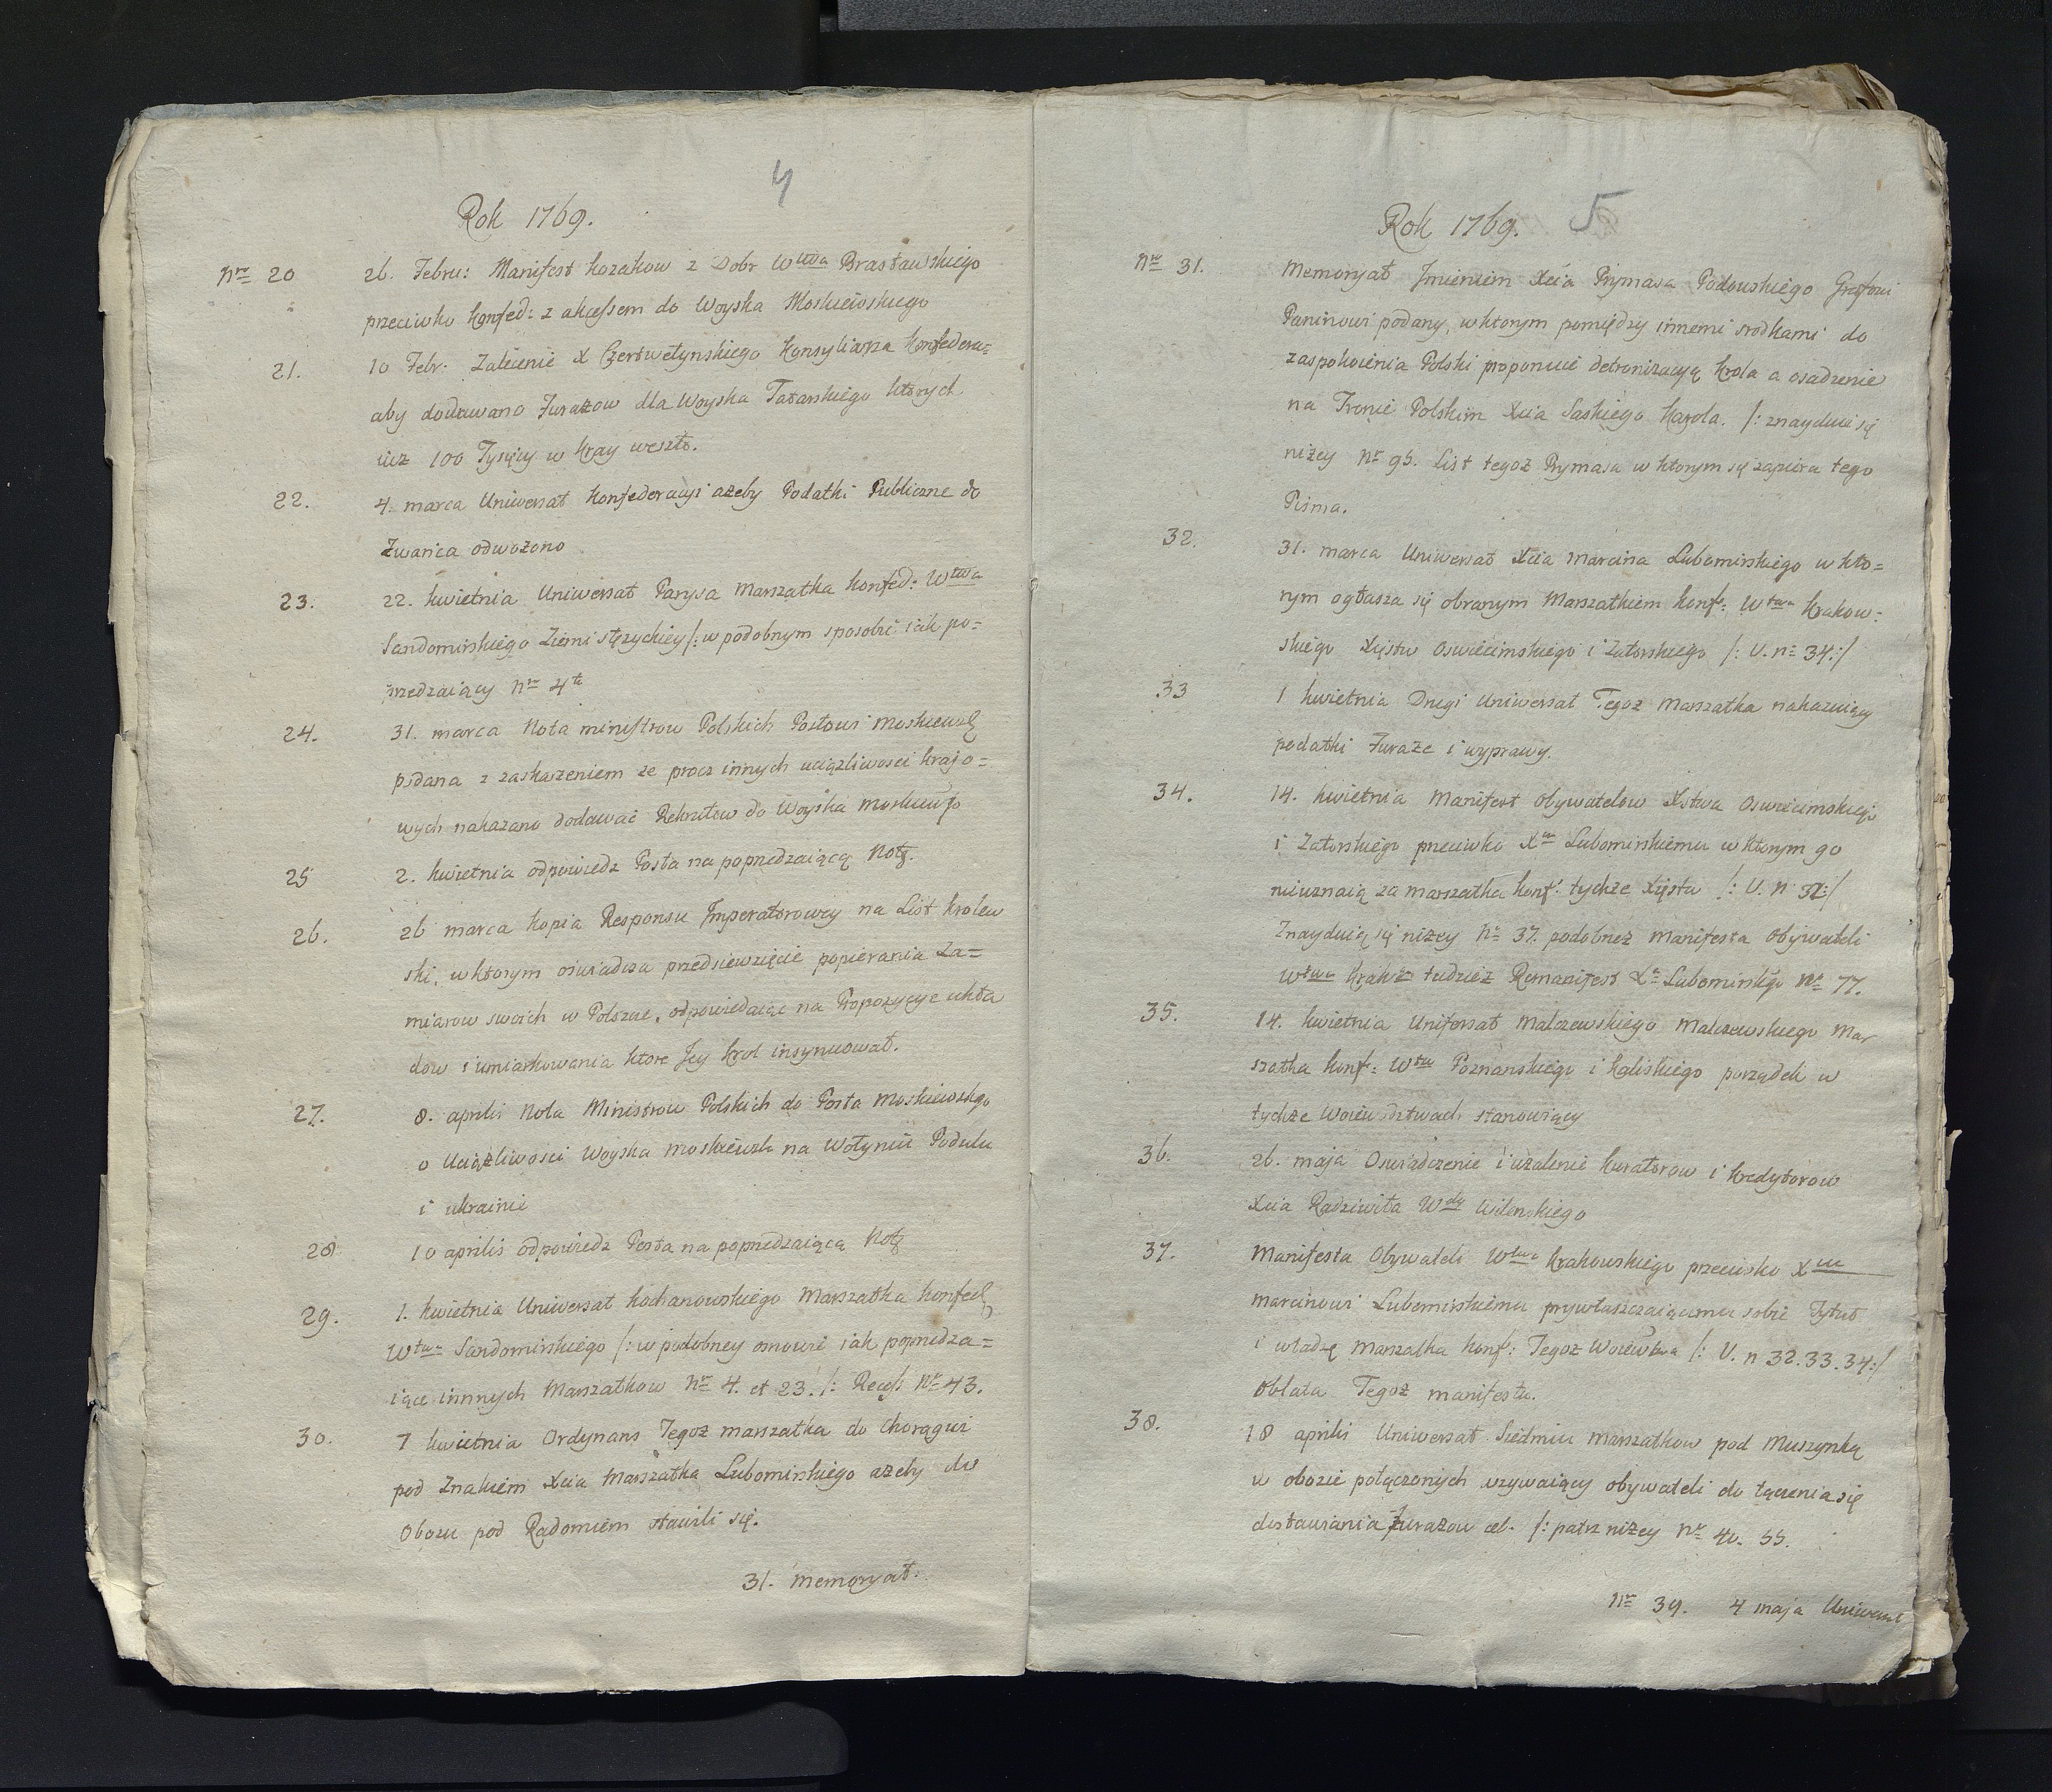 4
Rok 1769.
Nro 20 26. Febru: Manifest Kozakow z Dobr Wttwa Brasławskiego
przeciwko Konfed: z akcessem do Woyska Moskiewskiego
21. 10 Febr. Zalecenie X Czerwetynskiego Konsyliarza Konfedera=
aby dodawano Furażow dla Woyska Tatarskiego ktorych
iuz 100 Tysięcy w Kray weszło.
22. 4. marca Uniwersał Konfederacyi ażeby Podatki Publiczne do
Zwańca odwożono
23. 22. kwietnia Uniwersał Parysa Marszałka Konfed: Wttwa
Sandomirskiego Ziemi Stężyckiey /: w podobnym sposobie iak po=
przedzaiący Nro 4te
24. 31. marca Nota ministrow Polskich Posłowi Moskiewsk
podana z zaskarżeniem że procz innych uciążliwosci krajo=
wych nakazano dodawać Rekrutow do Woyska Moskiewgo
25 2. kwietnia odpowiedz Posła na poprzedzaiącą Notę.
26. 26 marca Kopia Responsu Imperatorowey na List Krolew
ski, w ktorym oswiadcza przedsiewzięcie popierania Za=
miarow swoich w Polszcze, odpowiedaiąc na Propozycye ukła
dow i umiarkowania ktore Jey Krol insynuował.
27. 8. aprilis Nota Ministrow Polskich do Posła Moskiewskgo
o Uciążliwosci Woyska Moskiewsk na Wołyniu Podolu
i ukrainie
28 10 aprilis odpowiedz Posła na poprzedzaiącą Notę
29. 1. kwietnia Uniwersał Kochanowskiego Marszałka Konfed
Wtwa Sandomirskiego /: w podobney osnowie iak poprzedza=
iące innnych Marszałkow Nro 4. et 23. /: Recess Nro 43.
30. 7 kwietnia Ordynans Tegoz marszałka do Chorągwi
pod Znakiem Xcia Marszałka Lubomirskiego ażeby do
Obozu pod Radomiem stawili się.
31. memoryał.
5
Rok 1769.
Nro 31. Memoryał Imieniem Xcia Prymasa Podoskiego Grafowi
Paninowi podany, w ktorym pomiędzy innemi srodkami do
zaspokoienia Polski proponuie detronizacyą Krola a osadzenie
na Tronie Polskim Xcia Saskiego Karola. /: znayduie się
niżey Nr 95. List tegoż Prymasa w ktorym się zapiera tego
Pisma.
32. 31. marca Uniwersał Xcia Marcina Lubomirskiego w kto=
rym ogłasza się obranym Marszałkiem Konf: Wtwa Krakow=
skiego Xięstw Oswiecimskiego i Zatorskiego /: V. nr 34:/
33 1 kwietnia Drugi Uniwersał Tegoz Marszałka nakazuiący
podatki Furaże i wyprawy.
34. 14. kwietnia Manifest Obywatelow Xstwa Oswiecimskiego
i Zatorskiego przeciwko Xu Lubomirskiemu w ktorym go
nieuznaią za marszałka Konf: tychże Xięstw /: V. n 32:/
Znayduią się niżey Nr 37. podobneż Manifesta Obywateli
Wtwa Krakw tudzież Remanifest Xa Lubomirskgo Nr 77.
35. 14. kwietnia Uniforsał Malczewskiego Malczewskiego Mar
szałka Konf: Wtw Poznanskiego i Kaliskiego porządek w
tychże Woiewodztwach stanowiący
36. 26. maja Oswiadczenie i użalenie kuratorow i kredytorow
Xcia Radziwiła Wdy Wilenskiego
37. Manifesta Obywateli Wtwa Krakowskiego przeciwko Xciu
Marcinowi Lubomirskiemu przywłaszczaiącemu sobie Tytuł
i władzę Marszałka Konf: Tegoz Woiewtwa /: V. n 32. 33. 34:/
Oblata Tegoż manifestu.
38. 18 aprilis Uniwersał Siedmiu marszałkow pod Muszynką
w obozie połączonych wzywaiący obywateli do łączenia się
dostawiania furażow etc. /: patrz niżey Nr 40. 55.
Nro 39. 4 maja Uniwersał